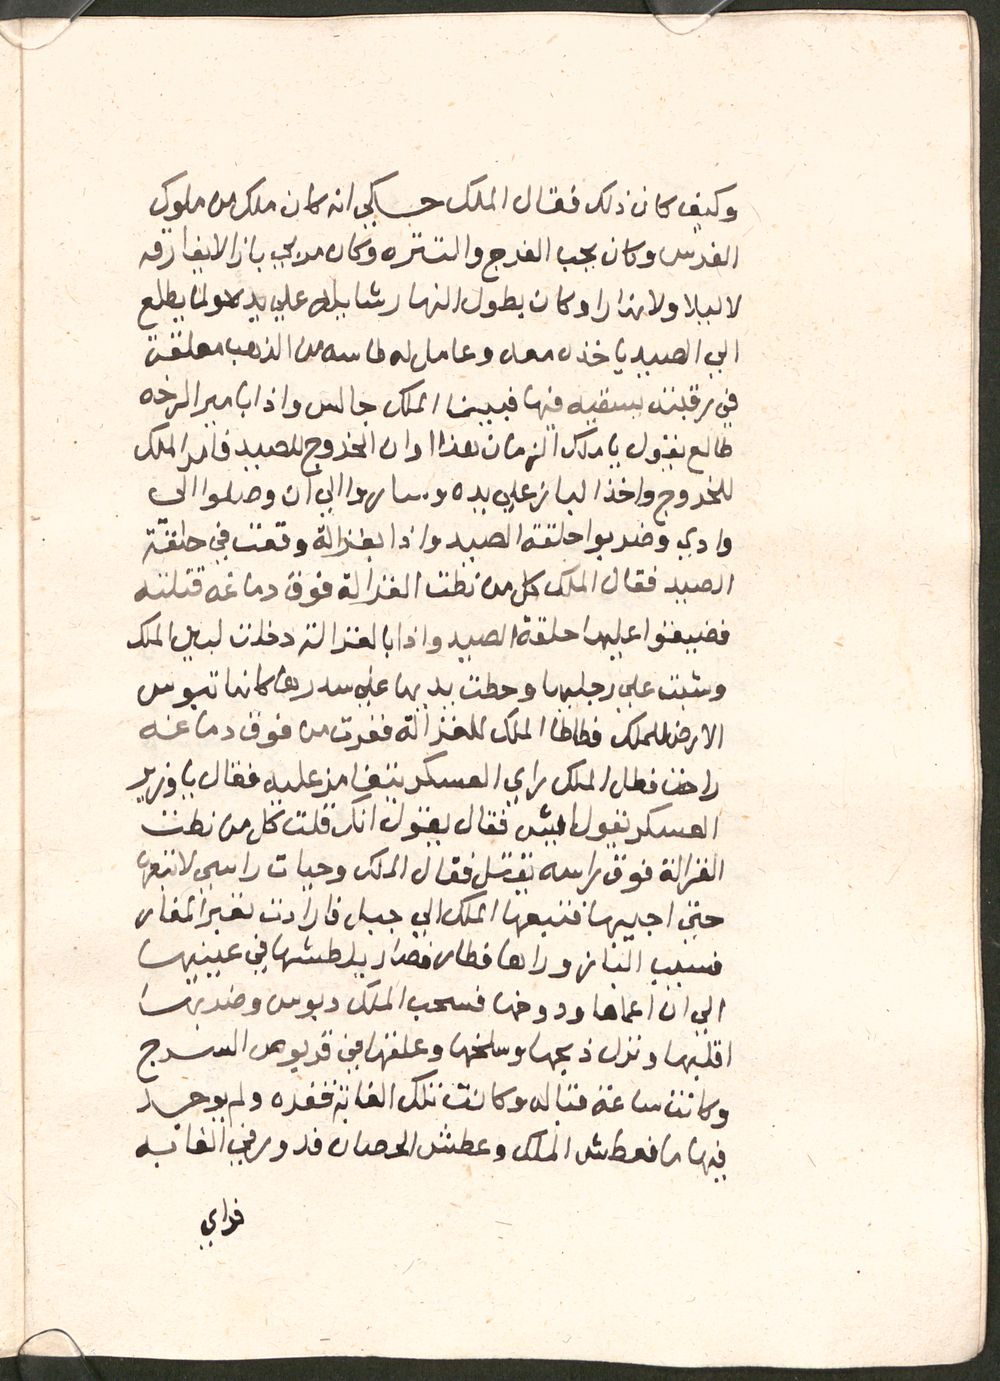 وكيف كان ذلك فقال الملك حكي انه كان ملك من ملوك
الفرس وكان يحب الفرج والتنزه وكان مربي بازا لا يفارقه
لا ليلا ولا نهارا وكان بطول النهار شايله علي يده ولما يطلع
الي الصيد ياخذه معه وعامل له طاسه من الذهب معلقة
في رقبته يسقيه فيها فبينما الملك جالس واذا بامير الرخه
طالع يقول يا ملك الزمان هذا اوان الخروج للصيد فامر الملك
للخروج واخذ الباز علي يده وساروا الي ان وصلوا الى
وادي وضربوا حلقة الصيد واذا بغزالة وقعت في حلقة
الصيد فقال الملك كل من نطت الغزالة فوق دماغه قتلته
فضيقوا عليها حلقة الصيد واذا بالغزالة دخلت لبين الملك
وشبت علي رجليها وحطت يديها علي سدرها كانها تبوس
الارض للملك فطاطا الملك للغزالة ففرت من فوق دماغه
راحت فطل الملك راي العسكر يتغامز عليه فقال يا وزير
العسكر تقول ايش فقال يقول انك قلت كل من نطت
الغزالة فوق راسه يقتل فقال الملك وحيات راسي لاتبعها
حتى اجيبها فتبعها الملك الي جبل فارادت تعبر المغار
فسيب الباز وراها فطار فصار يلطشها في عينيها
الي ان اعماها ودوخها فسحب الملك دبوس وضربها
اقلبها ونزل ذبحها وسلخها وعلقها في قربوص السرج
وكانت ساعة قياله وكانت تلك الغابة قفره ولم يوجد
فيها ما فعطش الملك وعطش الحصان فدور في الغابه
فراي